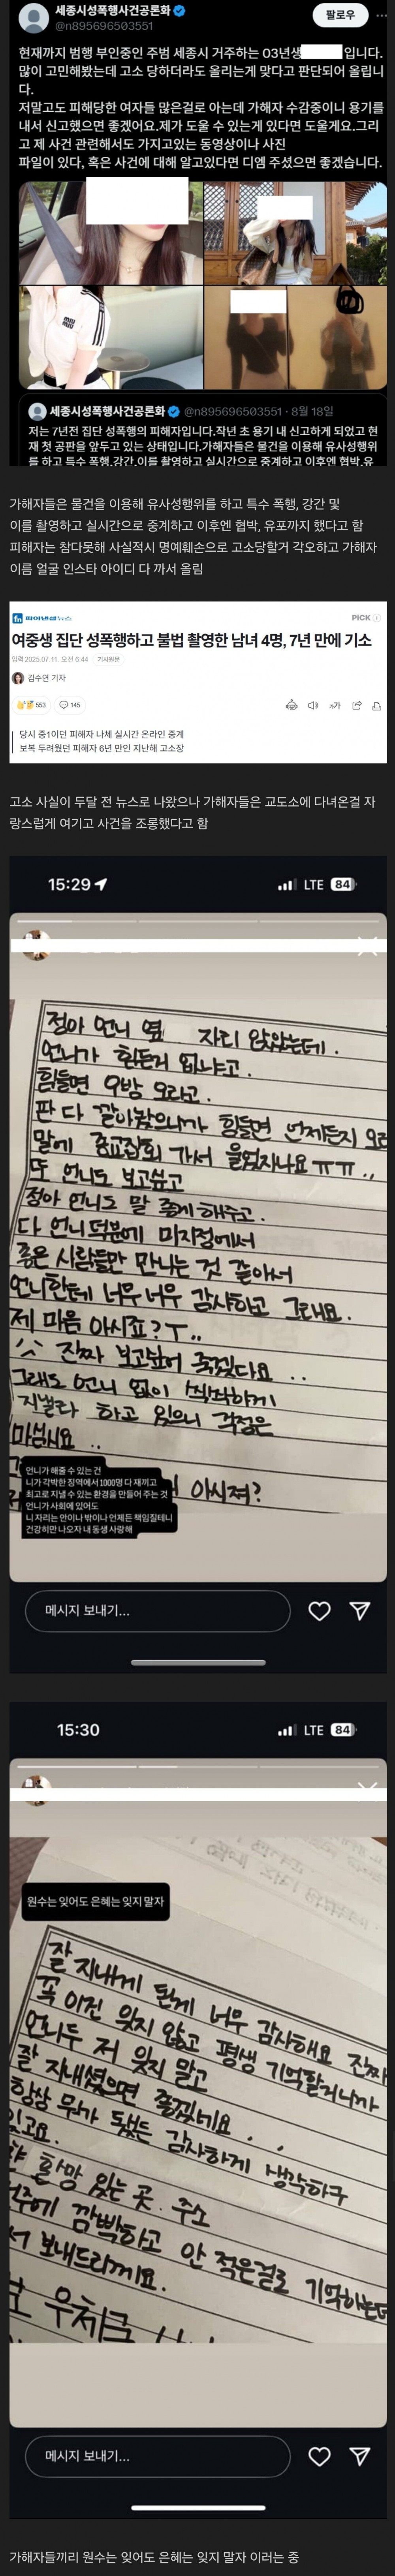 세종시성폭행사건공론화
@n895696503551
팔로우
현재까지 범행 부인중인 주범 세종시 거주하는 03년생 입니다.
많이 고민해봤는데 고소 당하더라도 올리는게 맞다고 판단되어 올립니
다.
저말고도 피해당한 여자들 많은걸로 아는데 가해자 수감중이니 용기를
내서 신고했으면 좋겠어요.제가 도울 수 있는게 있다면 도울게요.그리
고 제 사건 관련해서도 가지고있는 동영상이나 사진
파일이 있다, 혹은 사건에 대해 알고있다면 디엠 주셨으면 좋겠습니다.
세종시성폭행사건공론화 @n895696503551 · 8월 18일
저는 7년전 집단 성폭행의 피해자입니다.작년 초 용기 내 신고하게 되었고 현
재 첫 공판을 앞두고 있는 상태입니다.가해자들은 물건을 이용해 유사성행위
를 하고 특수 폭행,강간,이를 촬영하고 실시간으로 중계하고 이후엔 협박,유
가해자들은 물건을 이용해 유사성행위를 하고 특수 폭행, 강간 및
이를 촬영하고 실시간으로 중계하고 이후엔 협박, 유포까지 했다고 함
피해자는 참다못해 사실적시 명예훼손으로 고소당할거 각오하고 가해자
이름 얼굴 인스타 아이디 다 까서 올림
fn 파이낸셜뉴스
PiCK
여중생 집단 성폭행하고 불법 촬영한 남녀 4명, 7년 만에 기소
입력 2025.07.11. 오전 6:44 기사원문
김수연 기자
553 145
가가
당시 중1이던 피해자 나체 실시간 온라인 중계
보복 두려웠던 피해자 6년 만인 지난해 고소장
고소 사실이 두달 전 뉴스로 나왔으나 가해자들은 교도소에 다녀온걸 자
랑스럽게 여기고 사건을 조롱했다고 함
15:29 LTE 84
정아 언니 옆 자리 앉았는데.
언니가 힘든거 없냐고.
힘들면 오방 오라고.
판 다 깔아놨으니까 힘들면 언제든지 오라
말에 종교집회 가서 울었자나요 ㅠㅠ..
또 언니도 보고싶고
정아 언니도 말 좋게 해주고.
다 언니 덕분에 미지정에서
좋은 사람들만 만나는 것 같아서
언니한테 너무너무 감사하고 그래요.
제 마음 아시죠?ㅜ..
진짜 보고싶어 죽겠다요 ..
그래도 언니 없이 씩씩하게
지낼라 하고 있으니 걱정은
마십시요 ..
아시져?
언니가 해줄 수 있는 건
니가 각박한 징역에서 1000명 다 재끼고
최고로 지낼 수 있는 환경을 만들어 주는 것
언니가 사회에 있어도
니 자리는 안이나 밖이나 언제든 책임질테니
건강히만 나오자 내 동생 사랑해
메시지 보내기...
15:30 LTE 84
원수는 잊어도 은혜는 잊지 말자
잘 지내게 된게 너무 감사해요 진짜
꼭 이건 잊지 않고 평생 기억할거니까
언니두 저 잊지 말고
잘 지내셨으면 좋겠네요 . .
항상 뭐가 됐든 감사하게 생각하구
있고요.
희망 있는 곳. 주소
깜빡하고 안 적은걸로 기억하는데
서 보내드리께요.
우체국
메시지 보내기...
가해자들끼리 원수는 잊어도 은혜는 잊지 말자 이러는 중